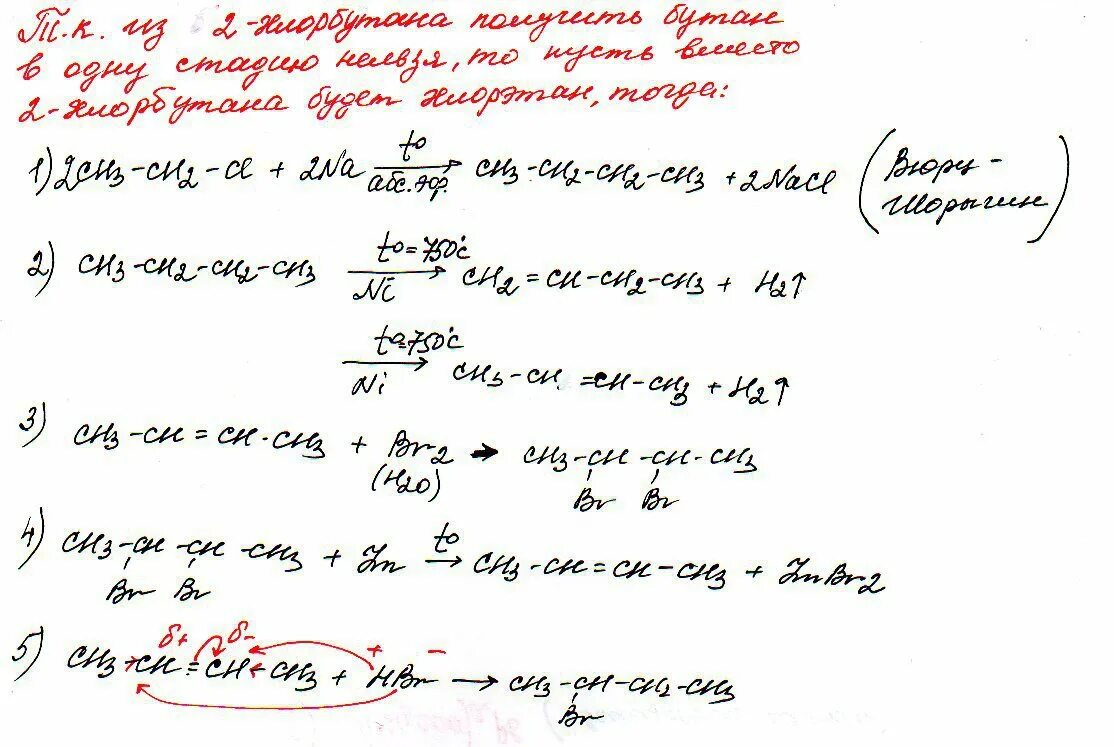 Т.к. из 2-хлорбутана получить бутан
в одну стадию нельзя, то пусть вместо
2-хлорбутана будет хлорэтан, тогда:
1) 2CH3-CH2-Cl + 2Na t° абс. эфр. → CH3-CH2-CH2-CH3 + 2NaCl (Вюрц-Шорыгин)
2) CH3-CH2-CH2-CH3 t°=750°C Ni → CH2=CH-CH2-CH3 + H2↑
t°=750°C Ni → CH3-CH=CH-CH3 + H2↑
3) CH3-CH=CH-CH3 + Br2 (H2O) → CH3-CH-CH-CH3
Br Br
4) CH3-CH-CH-CH3 + Zn t° → CH3-CH=CH-CH3 + ZnBr2
Br Br
δ+ δ- + -
5) CH3-CH=CH-CH3 + HBr → CH3-CH-CH2-CH3
Br